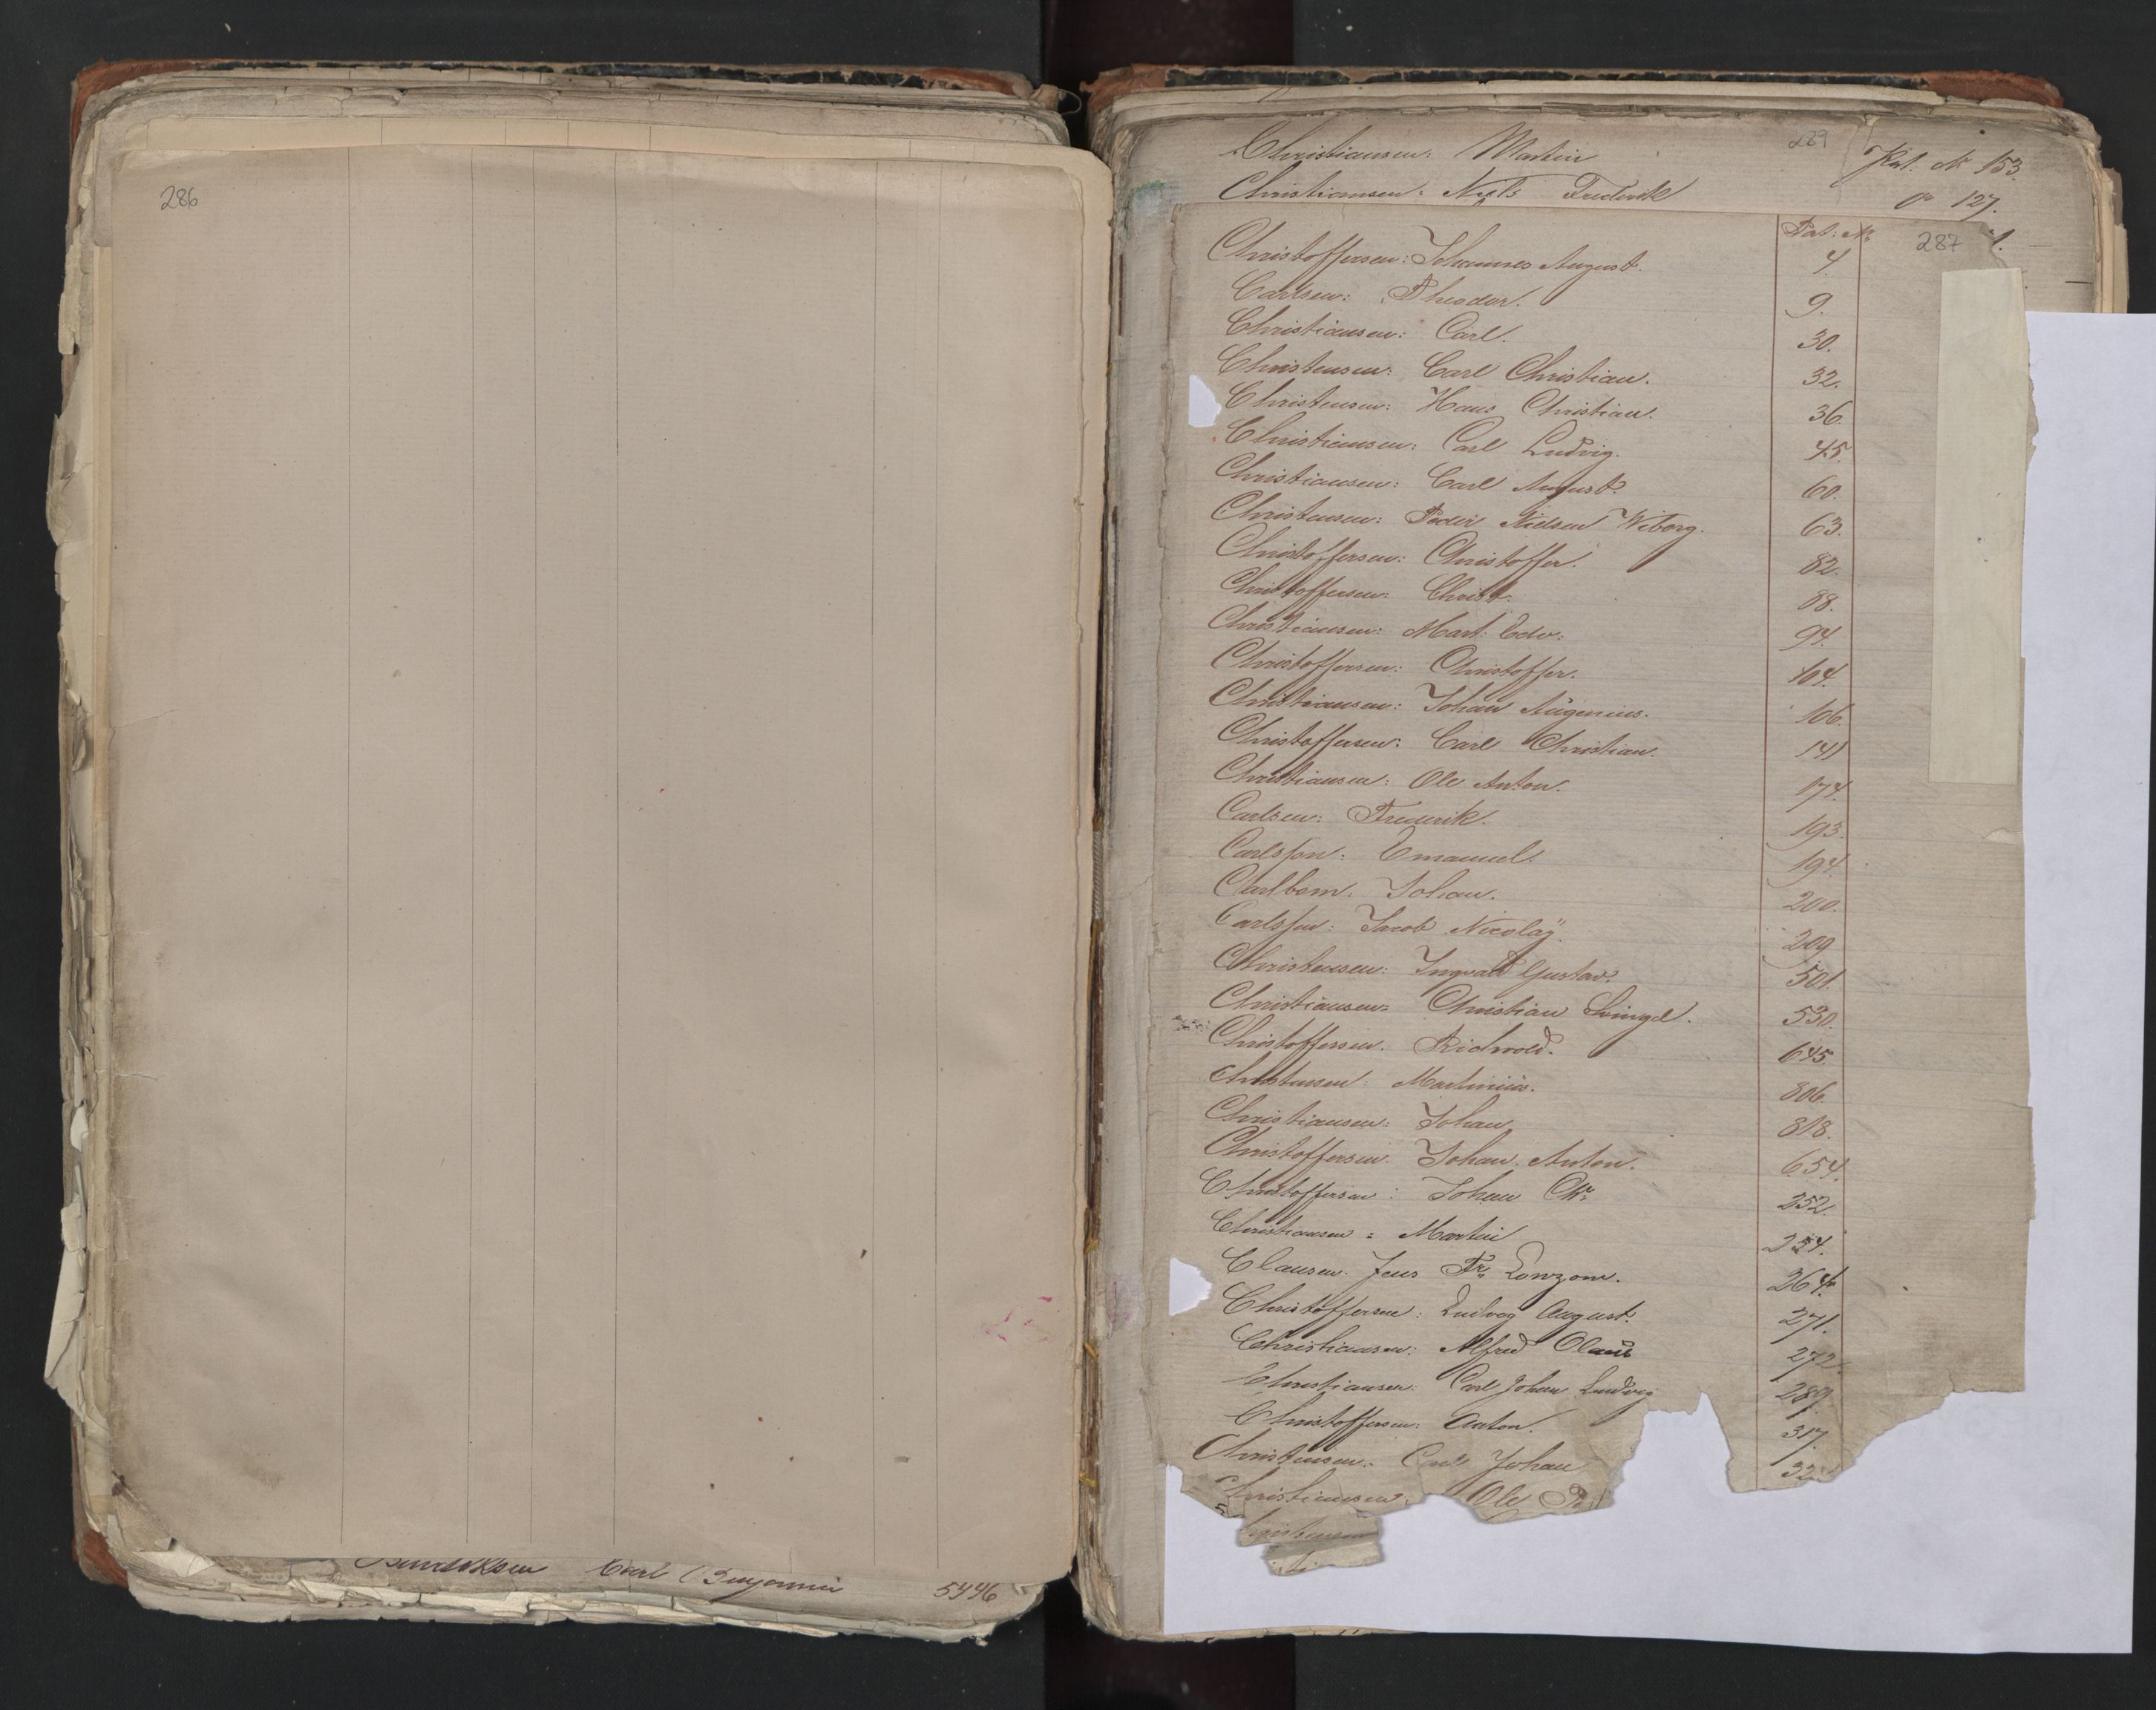 286
Carl Benjamin 5446
289
Christiansen: Martin Pat. № 153.
Christiansen: Niels Frederik do 127.
Pat: №
287
Christoffersen: Johannes August. 4.
Carlsen: Theodor. 9.
Christiansen: Carl. 30.
Christensen: Carl Christian. 32.
Christensen: Hans Christian. 36.
Christiansen: Carl Ludvig. 45.
Christiansen: Carl August. 60.
Christensen: Peder Nielsen Wiborg. 63.
Christoffersen: Christoffer. 82.
Christoffersen: Christ. 88.
Christiansen: Mart: Edv: 94.
Christoffersen: Christoffer. 104.
Christiansen: Johan Augenius. 106.
Christoffersen: Carl Christian. 141
Christiansen: Ole Anton. 174.
Carlsen: Frederik. 193.
Carlsson: Emanuel. 194.
Carlbom: Johan. 200.
Carlssen: Jacob Nicolaÿ. 209
Christensen: Ingvald Gustav. 501.
Christiansen: Christian 530.
Christoffersen. 645.
Christensen: Martinius. 806.
Christiansen: Johan. 818.
Christoffersen. Johan Anton. 654.
Christoffersen: Johan Chr. 252.
Christiansen: Martin 254.
Clausen. Jens Fr. Lowzow. 264.
Christoffersen: Ludvig August. 271.
Christiansen: Alfred Olaus 272.
Christiansen: Carl Johan Ludvig 289.
Christoffersen: Anton. 317.
Christensen. Carl Johan 32
Christiansen. Ole Pe